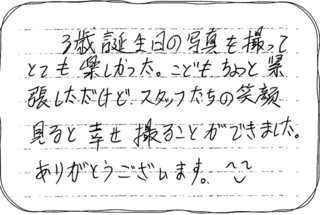 3歳誕生日の写真を撮って
とても楽しかった。こどもちょっと緊
張しただけど、スタッフたちの笑顔
見ると幸せ撮ることができました。
ありがとうございます。